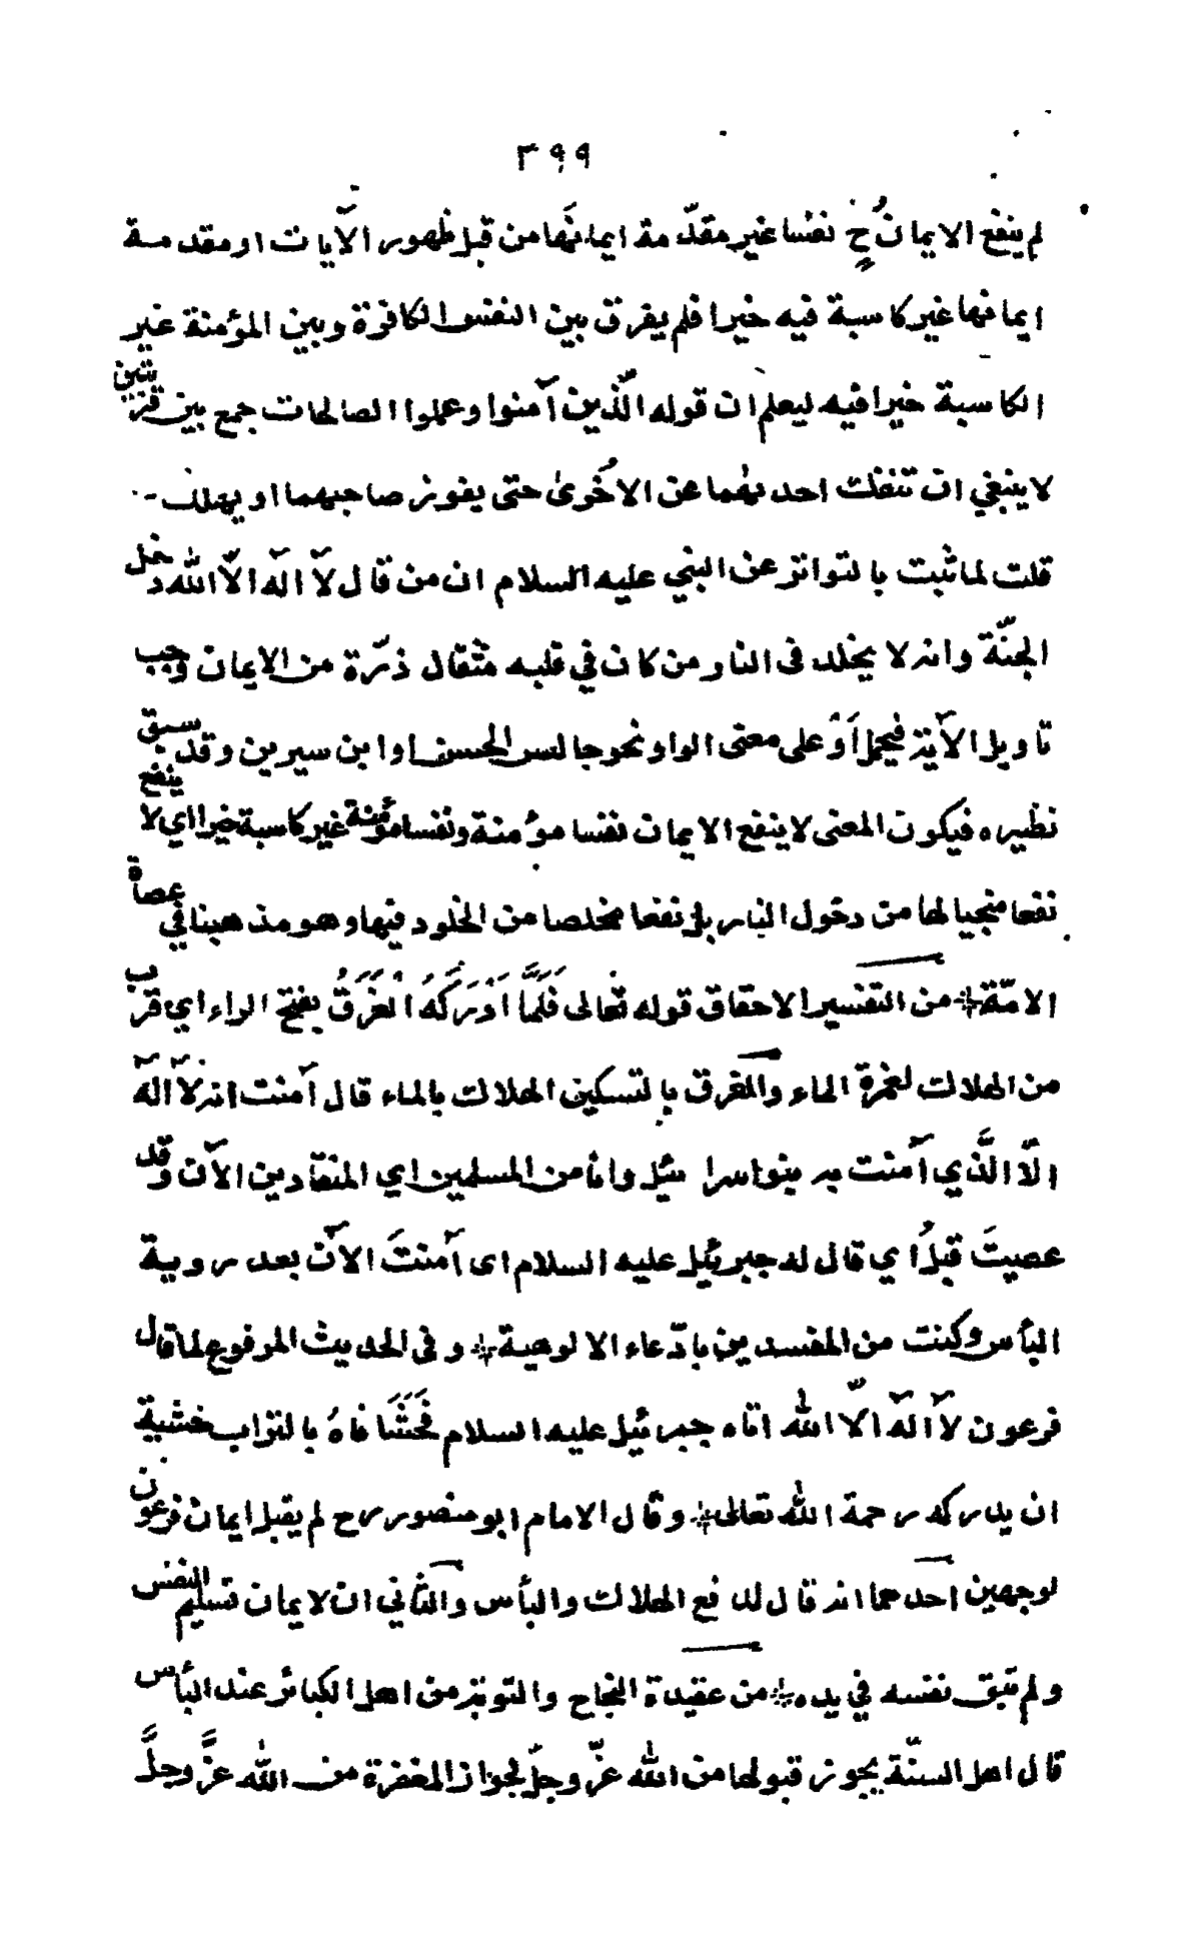 ٣٩٩
لم ينفع الايمان ح نفسا غير مقدّمة ايمانها من قبل ظهور الآيات او مقدمة
ايمانها غير كاسبة فيه خيرا فلم يفرق بين النفس الكافرة وبين المؤمنة غير
الكاسبة خيرا فيه ليعلم ان قوله الّذين آمنوا وعملوا الصالحات جمع بين قرينتين
لا ينبغي ان تنفك احديهما عن الاخرى حتى يفوز صاحبهما او يهلك
قلت لما ثبت بالتواتر عن النبي عليه السلام ان من قال لآ اله الاّ الله دخل
الجنّة وانه لا يخلد فى النار من كان في قلبه مثقال ذرّة من الايمان وجب
تاويل الآية فيحمل أوْ على معنى الواو نحو جالس الحسن او ابن سيرين وقد سبق
نظيره فيكون المعنى لا ينفع الايمان نفسا مؤمنة ونفسا مؤمنة غير كاسبة خيرا اي لا ينفع
نفعا منجيا لها من دخول النار بل نفعا مخلصا من الخلود فيها وهو مذهبنا في عصاة
الامّة * من التفسير الاحقاق قوله تعالى فَلَمَّا اَدْرَكَهُ الْغَرَقُ بفتح الراء اي قرب
من الهلاك لغمرة الماء والغرق بالتسكين الهلاك بالماء قال آمنت انه لآ اله
الاّ الّذي آمنت به بنوا سرائيل وانا من المسلمين اي المنقادين الآن وقد
عصيتَ قبلُ اي قال له جبرئيل عليه السلام اى آمنتَ الآن بعد روية
البأس وكنت من المفسدين بادّعاء الالوهية * و فى الحديث المرفوع لما قال
فرعون لآ اله الاّ الله اتاه جبرئيل عليه السلام فَحَشَا فاهُ بالتراب خشية
ان يدركه رحمة الله تعالى * وقال الامام ابو منصور رح لم يقبل ايمان فرعون
لوجهين احدهما انه قال لدفع الهلاك والبأس والثاني ان لايمان تسليم النفس
ولم تبق نفسه في يده * من عقيدة النجاح والتوبة من اهل الكبائر عند البأس
قال اهل السنّة يجوز قبولها من الله عزّ وجلّ لجواز المغفرة من الله عزَّ وجلَّ